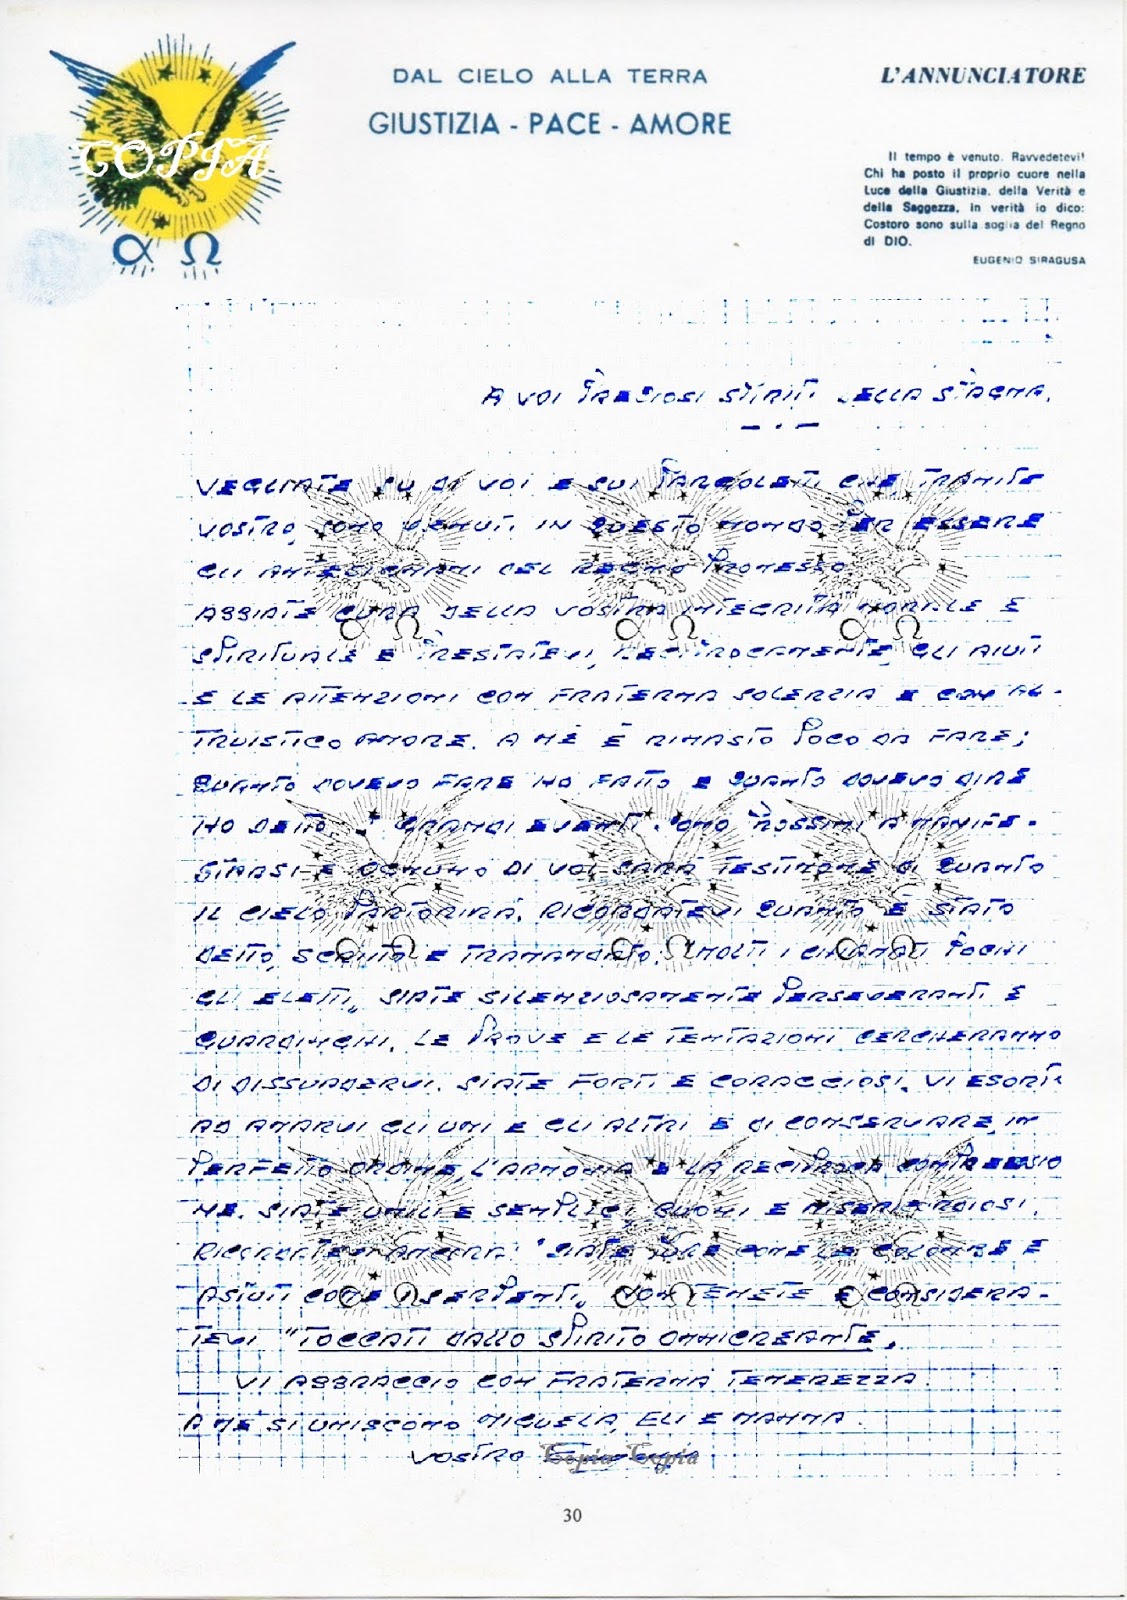 DAL CIELO ALLA TERRA
GIUSTIZIA - PACE - AMORE
L'ANNUNCIATORE
COPIA
Il tempo è venuto. Ravvedetevi!
Chi ha posto il proprio cuore nella
Luce della Giustizia, della Verità e
della Saggezza, in verità io dico:
Costoro sono sulla soglia del Regno
di DIO.
EUGENIO SIRAGUSA
α Ω
A VOI PREZIOSI SPIRITI DELLA SPAGNA.
VEGLIATE SU DI VOI E SUI PARGOLETTI CHE, TRAMITE
VOSTRO, SONO VENUTI IN QUESTO MONDO PER ESSERE
GLI ANTESIGNANI DEL REGNO PROMESSO.
ABBIATE CURA DELLA VOSTRA INTEGRITÀ MORALE E
SPIRITUALE E PRESTATEVI, RECIPROCAMENTE, GLI AIUTI
E LE ATTENZIONI CON FRATERNA SOLERZIA E CON AL-
TRUISTICO AMORE. A ME È RIMASTO POCO DA FARE;
QUANTO DOVEVO FARE HO FATTO E QUANTO DOVEVO DIRE
HO DETTO. I GRANDI EVENTI SONO PROSSIMI A MANIFE-
STARSI E OGNUNO DI VOI SARÀ TESTIMONE DI QUANTO
IL CIELO PARTORIRÀ. RICORDATEVI QUANTO È STATO
DETTO, SCRITTO E TRAMANDATO: "MOLTI I CHIAMATI POCHI
GLI ELETTI„ SIATE SILENZIOSAMENTE PERSEVERANTI E
GUARDINGHI. LE PROVE E LE TENTAZIONI CERCHERANNO
DI DISSUADERVI. SIATE FORTI E CORAGGIOSI. VI ESORTO
AD AMARVI GLI UNI E GLI ALTRI E DI CONSERVARE, IN
PERFETTO ORDINE, L'ARMONIA E LA RECIPROCA COMPRENSIO
NE. SIATE UMILI E SEMPLICI, BUONI E MISERICORDIOSI.
RICORDATEVI ANCORA: "SIATE PURE COME LE COLOMBE E
ASTUTI COME I SERPENTI„ NON TEMETE E CONSIDERA-
TEVI "TOCCATI DALLO SPIRITO ONNICREANTE„.
VI ABBRACCIO CON FRATERNA TENEREZZA.
A ME SI UNISCONO MIGUELA, ELI E MAMMA.
VOSTRO
Copia Copia
30